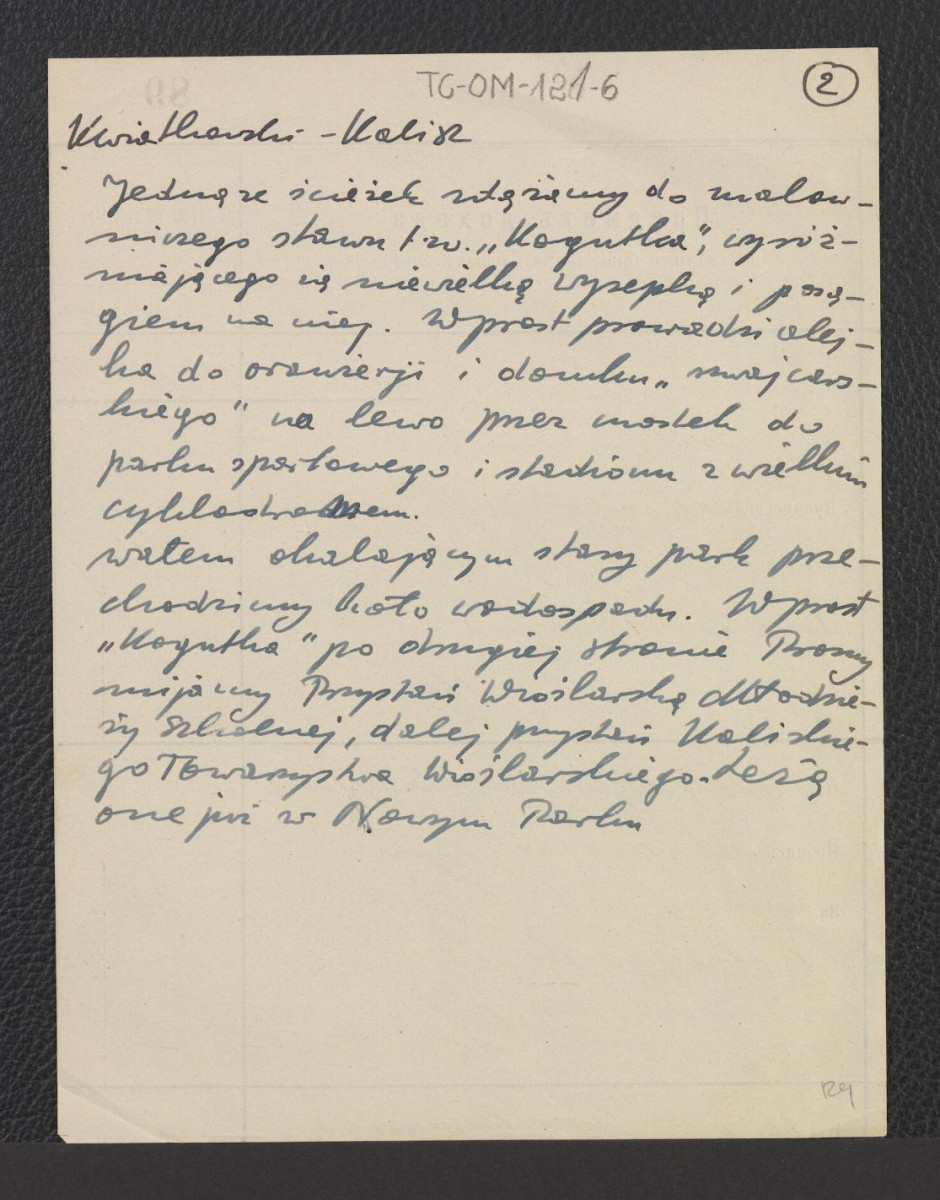 TG-OM-121-6
2
Kwiatkowski - Kalisz
Jedną ze ścieżek zdążamy do malow-
niczego stawu t.zw. „Kogutka", wyróż-
niającego się niewielką wysepką i posą-
giem na niej. Wprost prowadzi alej-
ka do oranżerji i domku „szwajcars-
kiego" na lewo przez mostek do
parku sportowego i stadionu z wielkim
cyklodromem.
wałem okalającym stary park prze-
chodzimy koło wodospadu. Wprost
„Kogutka" po drugiej stronie Prosny
mijamy Przystań Wioślarską Młodzie-
ży Szkolnej, dalej przystań Kaliskie-
go Towarzystwa Wioślarskiego. Leżą
one już w Nowym Parku